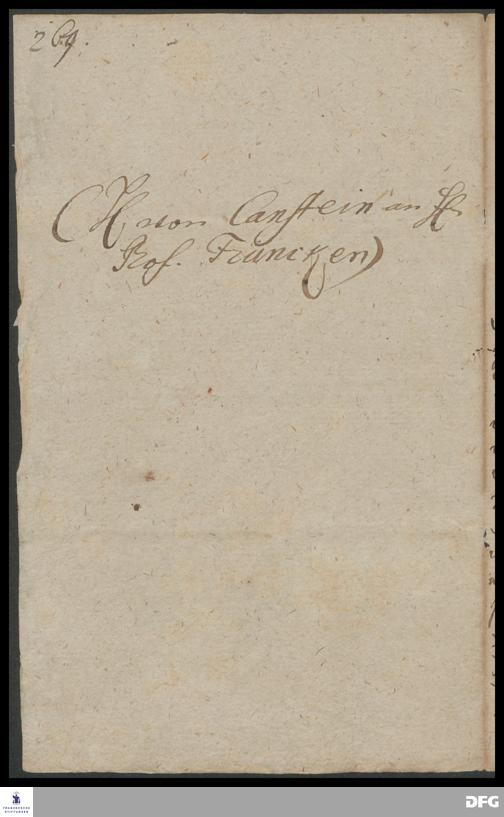 269.
(H von Canstein an H
Prof. Francken)
FRANCKESCHE
STIFTUNGEN
DFG